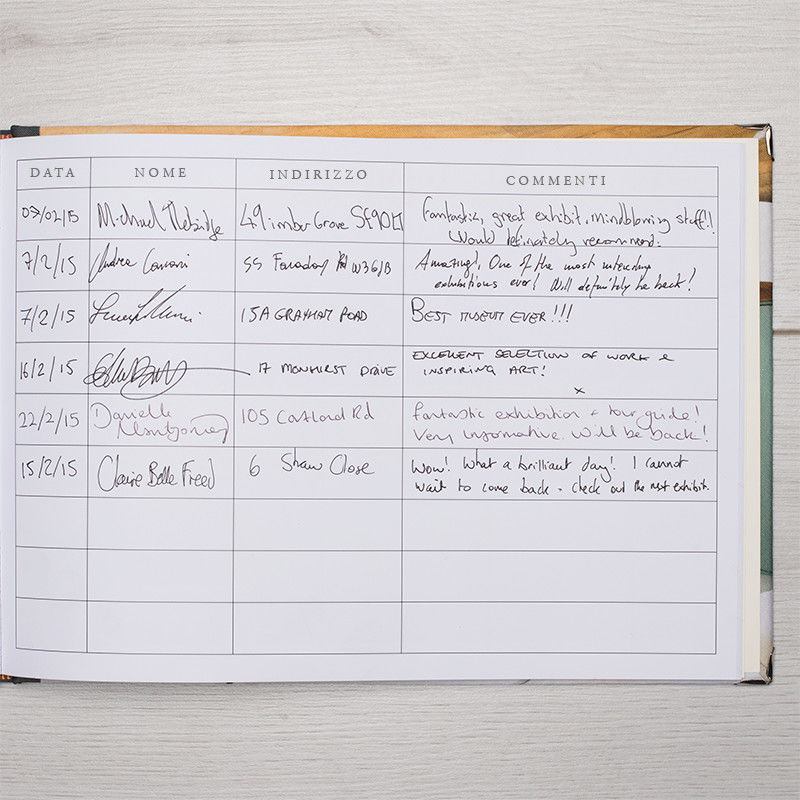 DATA NOME INDIRIZZO COMMENTI
07/02/15 Michael Grove Fantastic, great exhibit, mindblowing stuff!!
Would definately recommend.
7/2/15 Andrea 55 Faraday Rd W36JB Amazing!, One of the most interesting
exhibitions ever! Will definitely be back!
7/2/15 15A GRAYHAM ROAD BEST MUSEUM EVER!!!
16/2/15 17 MONKHIRST DRIVE EXCELLENT SELECTION OF WORK &
INSPIRING ART!
x
22/2/15 Danielle 105 Rd fantastic exhibition + tour guide!
Montgomery Very informative. Will be back!
15/2/15 Claire Belle Freed 6 Shaw Close Wow! What a brilliant day! I cannot
wait to come back - check out the next exhibit.